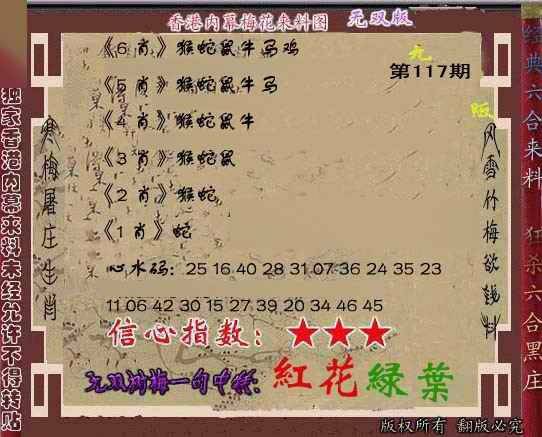 香港内幕梅花来料图 无双版
《6 肖》猴蛇鼠牛马鸡
无
第117期
《5 肖》猴蛇鼠牛马
版
《4 肖》猴蛇鼠牛
《3 肖》猴蛇鼠
《2 肖》猴蛇
《1 肖》蛇
心水码：25 16 40 28 31 07 36 24 35 23
11 06 42 30 15 27 39 20 34 46 45
信心指数：★★★
一句中特：紅花綠葉
独家香港内幕来料未经允许不得转贴
寒梅屠庄生肖
风雪竹梅欲钱料
经典六合来料
狂杀六合黑庄
版权所有 翻版必究